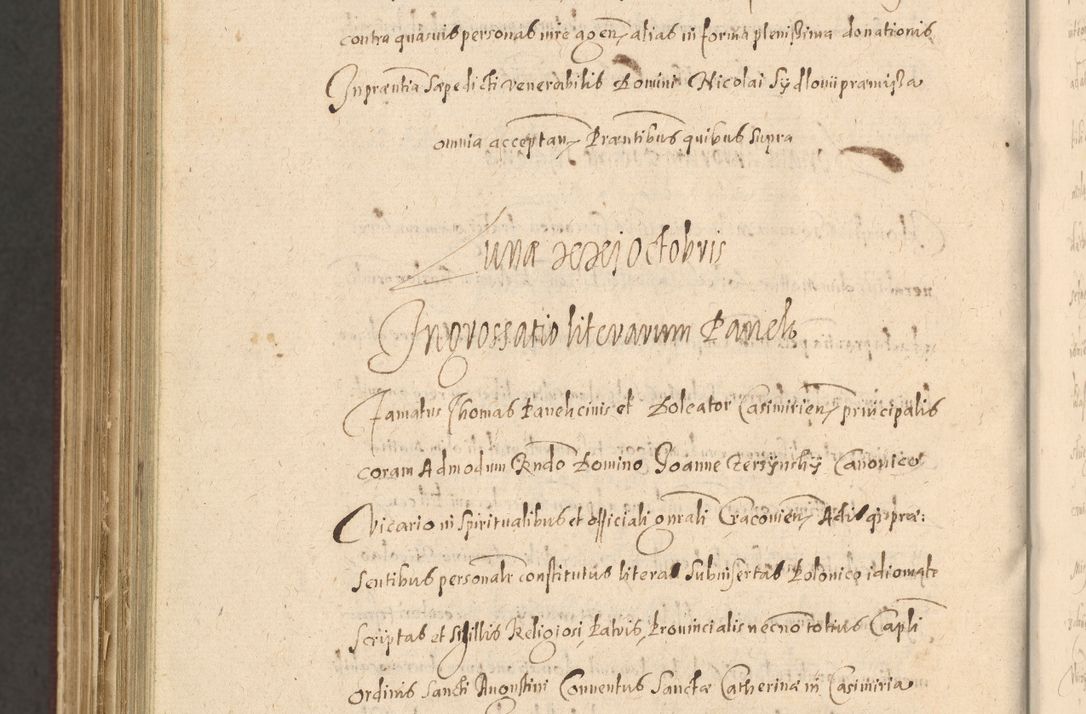 contra quasuis personas iure agen, alias in forma plenissima donationis
In prntia sæpedicti venerabilis Domini Nicolai Sydlovii præmissa
omnia acceptan, Præntibus quibus supra
Lunæ xxj Octobris
Ingrossatio literarum
Famatus Thomas et Doleator Casimirien, principalis
coram Admodum Rndo Domino Joanne Canonico
Vicario in spiritualibus et officiali gnrali Cracovien, Actisq præ:
sentibus personalr constitutus literas subinsertas Polonico idiomate
scriptas et sigillis Religiosi Patris Prouincialis necno totius Capli
ordinis Sancti Augustini Conuentus Sanctæ Catherinæ in Casimiria